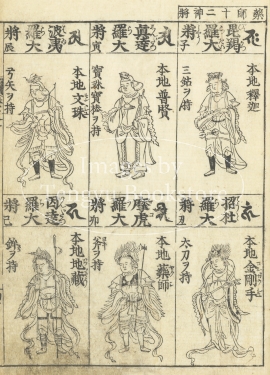 藥師十二神將
毘羯
羅大
將子
本地釈迦
三鈷ヲ持
真達
羅大
將寅
本地普賢
寳珠寳棒ヲ持
波夷
羅大
將辰
本地文珠
弓矢ヲ持
招杜
羅大
將丑
本地金剛手
太刀ヲ持
摩虎
羅大
將卯
本地藥師
斧ヲ持
因達
羅大
將巳
本地地蔵
鉾ヲ持
Image by